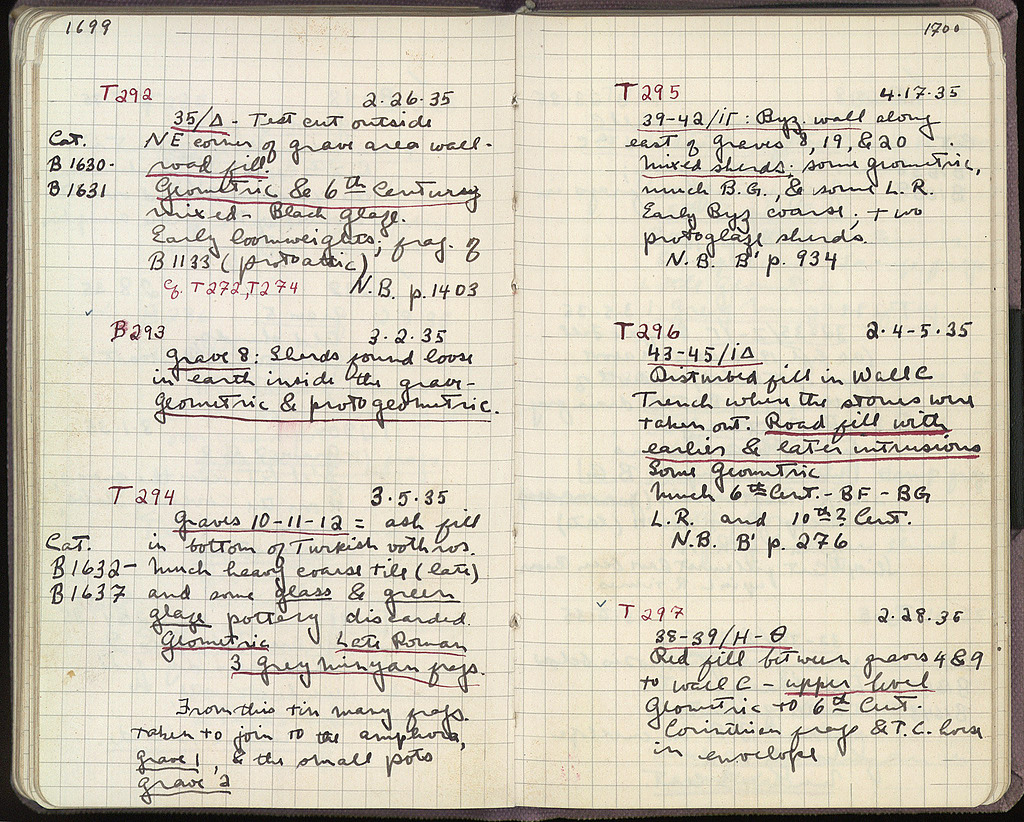 1699
T 292 2.26.35
35/Δ - Test cut outside
Cat. NE corner of grave area wall -
B 1630- road fill.
B 1631 Geometric & 6th Century
mixed - Black glaze.
Early loomweights; frag. of
B 1133 (protoattic)
cf. T 272, T 274 N.B. p. 1403
B 293 3.2.35
Grave 8: Sherds found loose
in earth inside the grave -
Geometric & protogeometric.
T 294 3.5.35
Graves 10-11-12 = ash fill
Cat. in bottom of Turkish vothros.
B 1632- Much heavy coarse tile (late)
B 1637 and some glass & green
glaze pottery discarded.
Geometric Late Roman
3 Grey minyan frags.
From this tin many frags.
taken to join to the amphora,
grave 1, & the small pots
grave 2
1700
T 295 4.17.35
39-42/ΙΓ: Byz. wall along
east of graves 8, 19, & 20.
Mixed sherds; some geometric,
much B.G., & some L.R.
Early Byz coarse; two
protoglaze sherds.
N.B. B' p. 934
T 296 2.4-5.35
43-45/ιΔ
Disturbed fill in Wall C
Trench where the stones were
taken out. Road fill with
earlier & later intrusions
Some Geometric
Much 6th Cent. - BF - BG
L.R. and 10th? Cent.
N.B. B' p. 276
T 297 2.28.35
38-39/H-Θ
Red fill between graves 4 & 9
to wall C - upper level
Geometric to 6th Cent.
Corinthian frags & T.C. horse
in envelope